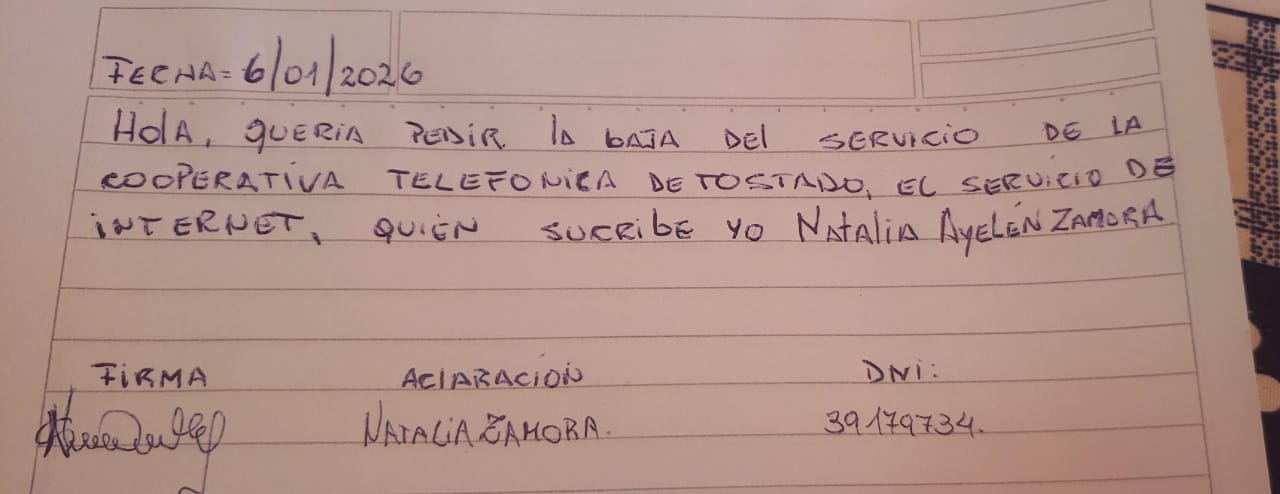 FECHA= 6/01/2026
HolA, QUERIA PEDIR lA bAJA DEl SERVICIO DE LA
COOPERATIVA TELEFONICA DE TOSTADO, EL SERVICIO DE
INTERNET, QUIÉN SUCRIBE YO NATALIA AYELÉN ZAMORA
FIRMA ACLARACIÓN DNI:
NATALIA ZAMORA. 39179734.